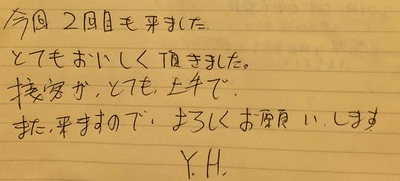 今回 2回目も来ました.
とてもおいしく頂きました。
接客が、とても、上手で、
また、来ますので、よろしくお願いします
Y.H.